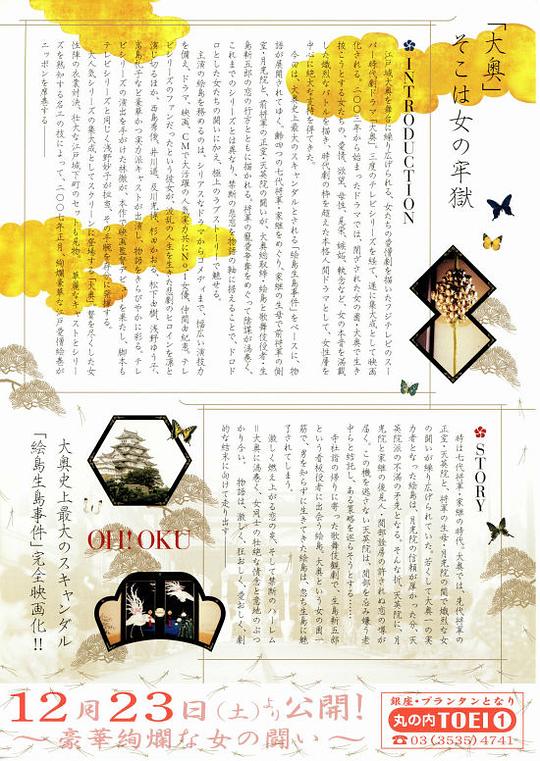 「大奥」
そこは女の牢獄
INTRODUCTION
江戸城大奥を舞台に繰り広げられる、女たちの愛憎劇を描いたフジテレビのスー
パー時代劇ドラマ「大奥」。三度のテレビシリーズを経て、遂に集大成として映画
化される。二〇〇三年から始まったドラマでは、閉ざされた女の園・大奥で生き
抜こうとする女たちの、愛情、欲望、母性、見栄、嫉妬、執念など、女の本音を満載
した熾烈なバトルを描き、時代劇の枠を超えた本格人間ドラマとして、女性層を
中心に絶大な支持を得てきた。
今回は、大奥史上最大のスキャンダルとされる「絵島生島事件」をベースに、物
語が展開されてゆく。齢四つの七代将軍・家継をめぐり、家継の生母で前将軍の側
室・月光院と、前将軍の正室・天英院の闘いが、大奥総取締・絵島と歌舞伎役者・生
島新五郎の恋の行方とともに描かれる。将軍の寵愛争奪をめぐって陰謀が渦巻く、
これまでのシリーズとは異なり、禁断の悲恋を物語の軸に据えることで、ドロド
ロとした女たちの闘いに加え、極上のラブストーリーで魅せる。
主演の絵島を務めるのは、シリアスなドラマからコメディまで、幅広い演技力
を備え、ドラマ、映画、CMで大活躍の人気実力共にNo.1女優、仲間由紀恵。テレ
ビシリーズのファンだったという彼女が、波乱の人生を生きた悲劇のヒロインを凛と
演じ切るほか、西島秀俊、井川遥、及川光博、杉田かおる、松下由樹、浅野ゆう子、
高島礼子など豪華かつ実力派キャストが出演し、物語をきらびやかに彩る。テレ
ビシリーズの演出を手がけた林徹が、本作で映画監督デビューを果たし、脚本も
テレビシリーズと同じく浅野妙子が担当、その手腕を存分に発揮する。
大人気シリーズの集大成としてスクリーンに登場する「大奥」。贅を尽くした女
性陣の衣裳対決、壮大な江戸城下町のセットも見物。華麗なキャストとシリー
ズを熟知する名工の技によって、二〇〇七年正月、絢爛豪華な江戸愛憎絵巻が
ニッポンを席巻する――
STORY
時は七代将軍・家継の時代。大奥では、先代将軍の
正室・天英院と、将軍の生母・月光院の間で熾烈な女
の闘いが繰り広げられていた。若くして大奥一の実
力者となった絵島は、月光院の信頼が厚かった分、天
英院派の不満の矛先となる。そんな折、天英院に、月
光院と家継の後見人・間部詮房の許されぬ恋の噂が
届く。この機を逃さない天英院は、間部を忌み嫌う老
中らと結託し、ある策略を巡らそうとする……
寺社詣の帰りに寄った歌舞伎観劇で、生島新五郎
という看板役者に出会う絵島。大奥という女の園一
筋で、男を知らずに生きてきた絵島は、忽ち生島に魅
了されてしまう。
激しく燃え上がる恋の炎、そして禁断のハーレム
=大奥に渦巻く、女同士の壮絶な情念と意地のぶつ
かり合い。物語は、激しく、狂おしく、愛おしく、劇
的な結末に向けて走り出す――
大奥史上最大のスキャンダル
「絵島生島事件」完全映画化!!
OH! OKU
12月23日(土)より公開!
〜豪華絢爛な女の闘い〜
銀座・プランタンとなり
丸の内TOEI①
☎03(3535)4741